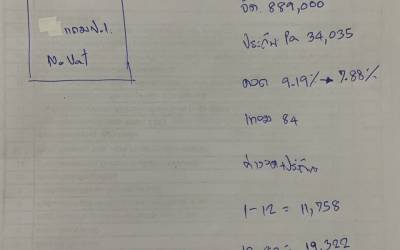 กทม ป.1.
No Vat
จัด 889,000
ประกัน Pa 34,035
ดอก 9.19% → 7.88%
เทอม 84
ค่างวด+ประกัน
1-12 = 11,758
= 19,322